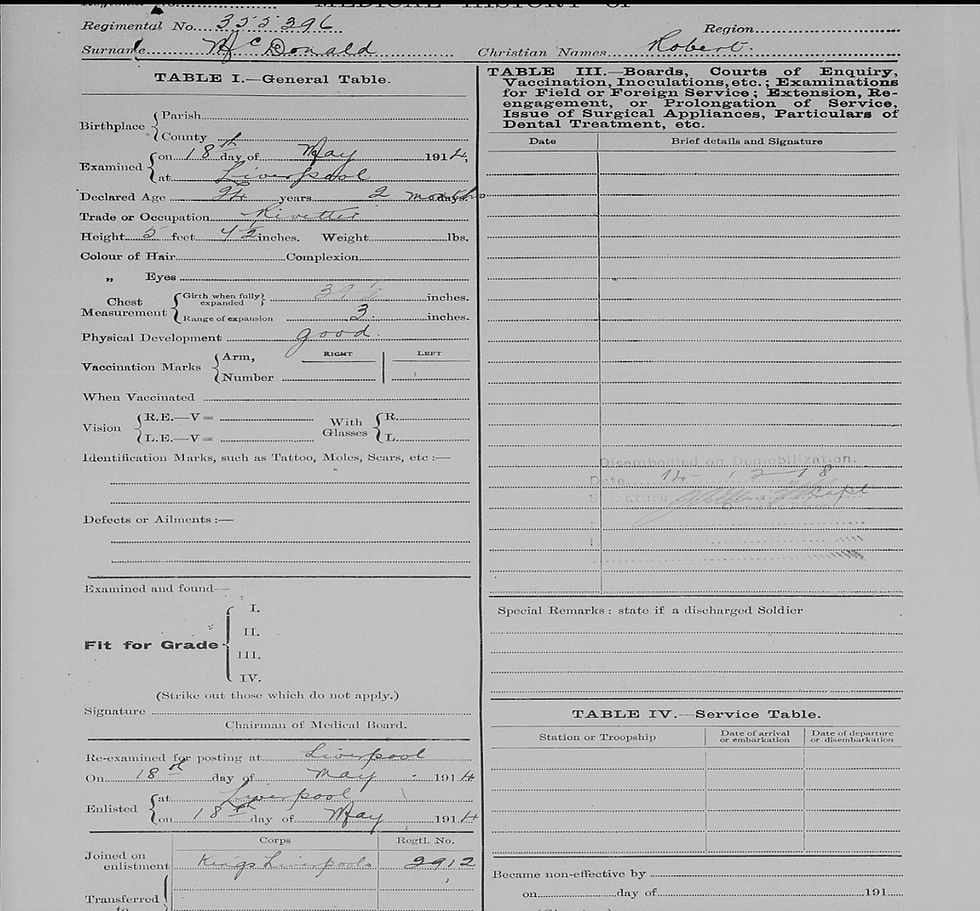 MEDICAL HISTORY OF
Regimental No. 355396
Region
Surname McDonald
Christian Names Robert.
TABLE I.—General Table.
Birthplace
Parish
County
Examined
on 18th day of May 1914,
at Liverpool
Declared Age 24 years 2 months
Trade or Occupation Rivetter
Height 5 feet 4½ inches. Weight lbs.
Colour of Hair Complexion
„ Eyes
Chest Measurement
Girth when fully expanded 39½ inches.
Range of expansion 3 inches.
Physical Development good.
Vaccination Marks
Arm, RIGHT LEFT
Number
When Vaccinated
Vision
R.E.—V=
L.E.—V=
With Glasses
R.
L.
Identification Marks, such as Tattoo, Moles, Scars, etc :—
Defects or Ailments :—
Examined and found—
Fit for Grade
I.
II.
III.
IV.
(Strike out those which do not apply.)
Signature
Chairman of Medical Board.
Re-examined for posting at Liverpool
On 18th day of May 1914
Enlisted
at Liverpool
on 18th day of May 1914
Corps Regtl. No.
Joined on enlistment Kings Liverpools 2912
Transferred to
TABLE III.—Boards, Courts of Enquiry,
Vaccination, Inoculations, etc.; Examinations
for Field or Foreign Service; Extension, Re-
engagement, or Prolongation of Service,
Issue of Surgical Appliances, Particulars of
Dental Treatment, etc.
Date Brief details and Signature
Disembodied on Demobilization.
Date
Signature Capt
Special Remarks : state if a discharged Soldier
TABLE IV.—Service Table.
Station or Troopship
Date of arrival or embarkation
Date of departure or disembarkation
Became non-effective by
on day of 191